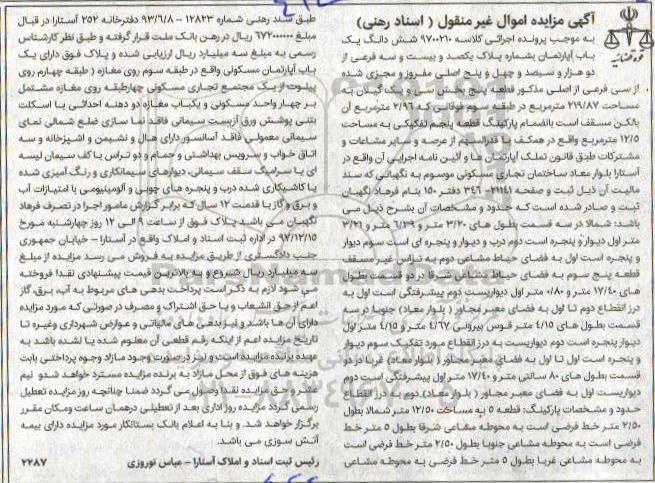 آگهی مزایده اموال غیر منقول ( اسناد رهنی)
به موجب پرونده اجرائی کلاسه ۹۷۰۰۲۱۰ شش دانگ یک
باب آپارتمان بشماره پلاک یکصد و بیست و سه فرعی از
دو هزار و سیصد و چهل و پنج اصلی مفروز و مجزی شده
از سی فرعی از اصلی مذکور قطعه پنج بخش سی و یک گیلان به
مساحت ۲۱۹/۸۷ مترمربع در طبقه سوم فوقانی که ۲/۹۶ مترمربع آن
بالکن مسقف است بانضمام پارکینگ قطعه پنجم تفکیکی به مساحت
۱۲/۵ مترمربع واقع در همکف با قدرالسهم از عرصه و سایر مشاعات و
مشترکات طبق قانون تملک آپارتمان ها و آئین نامه اجرایی آن واقع در
آستارا بلوار معاد ساختمان تجاری مسکونی موسوم به نگهبانی که سند
مالیت آن ذیل ثبت و صفحه ۲۱۱۴۱- ۳۴۶ دفتر ۱۵۰ بنام فرهاد نگهبان
ثبت و صادر شده است که حدود و مشخصات آن بشرح ذیل می
باشد: شمالا در سه قسمت بطول های ۳/۲۰ متر و ۶/۳۹ متر و ۳/۲۱
متر اول دیوار و پنجره است دوم درب و دیوار و پنجره ای است سوم دیوار
و پنجره است اول به فضای حیاط مشاعی دوم به تراس غیر مسقف
قطعه پنج سوم به فضای حیاط مشاعی شرقا در دو قسمت بطول
های ۱۷/۴۰ متر و ۰/۸۰ متر اول دیواریست دوم پیشرفتگی است اول به
درز انقطاع دوم تا اول به فضای معبر مجاور ( بلوار معاد) جنوبا در سه
قسمت بطول های ۴/۱۵ متر قوس بیرونی ۴/۶۷ متر و ۴/۱۵ متر اول
دیوار پنجره است دوم دیواریست به درز انقطاع مورد تفکیک سوم دیوار
و پنجره است اول تا اول به فضای معبر مجاور ( بلوار معاد) غربا در دو
قسمت بطول های ۸۰ سانتی متر و ۱۷/۴۰ متر اول پیشرفتگی است دوم
دیواریست اول به فضای معبر مجاور ( بلوار معاد) دوم به درز انقطاع
حدود و مشخصات پارکینگ: قطعه ۵ به مساحت ۱۲/۵۰ متر شمالا بطول
۲/۵۰ متر خط فرضی است به محوطه مشاعی شرقا بطول ۵ متر خط
فرضی است به محوطه مشاعی جنوبا بطول ۲/۵۰ متر خط فرضی است
به محوطه مشاعی غربا بطول ۵ متر خط فرضی به محوطه مشاعی
طبق سند رهنی شماره ۱۲۸۲۳ - ۹۳/۶/۸ دفترخانه ۲۵۲ آستارا در قبال
مبلغ ۶۷۲۰۰۰۰۰۰ ریال در رهن بانک ملت قرار گرفته و طبق نظر کارشناس
رسمی به مبلغ سه میلیارد ریال ارزیابی شده و پلاک فوق دارای یک
باب آپارتمان مسکونی واقع در طبقه سوم روی مغازه ( طبقه چهارم روی
پیلوت از یک مجتمع تجاری مسکونی چهارطبقه روی مغازه مشتمل
بر چهار واحد مسکونی و یکباب مغازه دو دهنه احداثی با اسکلت
بتنی پوشش ورق آزبست سیمانی فاقد نما سازی ضلع شمالی نمای
سیمانی معمولی فاقد آسانسور دارای هال و نشیمن و آشپزخانه و سه
اتاق خواب و سرویس بهداشتی و حمام و دو تراس با کف سیمان لیسه
ای با سرامیگ سقف سیمانی، دیوارهای سیمانکاری و رنگ آمیزی شده
با کاشیکاری شده درب و پنجره های چوبی و آلومینیومی با امتیازات آب
و برق و گاز با قدمت ۱۲ سال که برابر گزارش مامور اجرا در تصرف فرهاد
نگهبان می باشد پلاک فوق از ساعت ۹ الی ۱۲ روز چهارشنبه مورخ
۹۷/۱۲/۱۵ در اداره ثبت اسناد و املاک واقع در آستارا - خیابان جمهوری
جنب دادگستری از طریق مزایده به فروش می رسد مزایده از مبلغ
سه میلیارد ریال شروع و به بالاترین قیمت پیشنهادی نقدا فروخته
می شود لازم به ذکر است پرداخت بدهی های مربوط به آب، برق، گاز
اعم از حق انشعاب و یا حق اشتراک و مصرف در صورتی که مورد مزایده
دارای آن ها باشد و نیز بدهی های مالیاتی و عوارض شهرداری وغیره تا
تاریخ مزایده اعم از اینکه رقم قطعی آن معلوم شده یا نشده باشد به
عهده برنده مزایده است و نیز در صورت وجود مازاد وجوه پرداختی بابت
هزینه های فوق از محل مازاد به برنده مزایده مسترد خواهد شدو نیم
عشر و حق مزایده نقدا وصول می گردد ضمنا چنانچه روز مزایده تعطیل
رسمی گردد مزایده روز اداری بعد از تعطیلی درهمان ساعت ومکان مقرر
برگزار خواهد شد. و بنا به اعلام بانک بستانکار مورد مزایده دارای بیمه
آتش سوزی می باشد.
رئیس ثبت اسناد و املاک آستارا - عباس نوروزی ۲۲۸۷